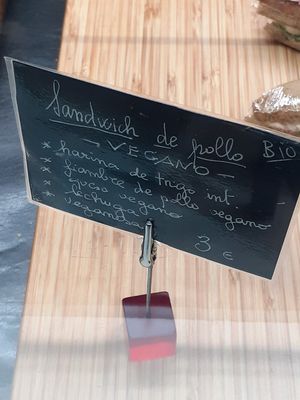 Sandwich de pollo BIO
- VEGANO -
* harina de trigo int.
* fiambre de pollo vegano
* queso vegano
* lechuga
* veganesa
3 €